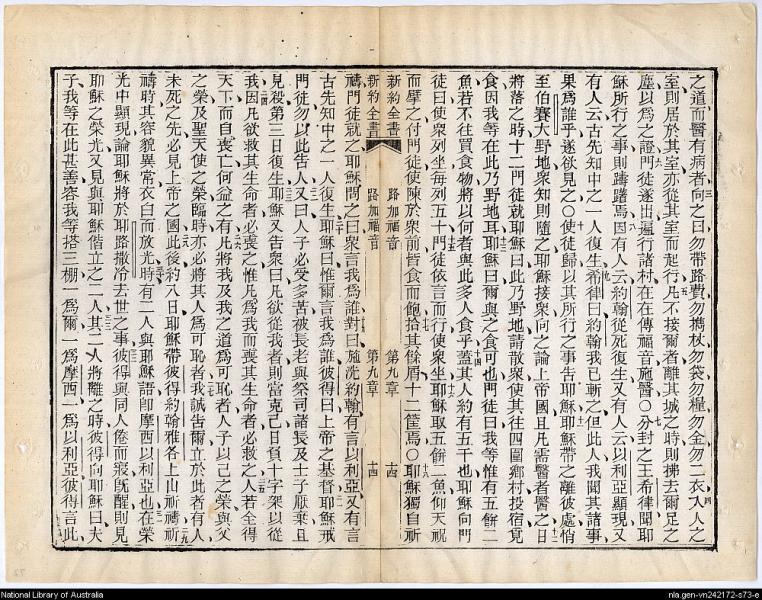 之道而醫有病者向之曰勿帶路費勿攜杖勿袋勿糧勿金勿二衣入人之
室則居於其室亦從其室而起行凡不接爾者離其城之時則拂去爾足之
塵以為之證門徒遂出遍行諸村在在傳福音施醫〇分封之王希律聞耶
穌所行之事則躊躇焉因有人云約翰從死復生又有人云以利亞顯現又
有人云古先知中之一人復生希律曰約翰我已斬之但此人我聞其諸事
果為誰乎遂欲見之〇使徒歸以其所行之事告耶穌耶穌帶之離彼處悄
至伯賽大野地衆知則隨之耶穌接衆向之論上帝國且凡需醫者醫之日
將落之時十二門徒就耶穌曰此乃野地請散衆使其往四圍鄉村投宿覓
食因我等在此乃野地耳耶穌曰爾與之食可也門徒曰我等惟有五餅二
魚若不往買食物將以何者與此多人食乎蓋其人約有五千也耶穌向門
徒曰使衆列坐每列五十門徒依言而行使衆坐耶穌取五餅二魚仰天祝
而擘之付門徒使陳於衆前皆食而飽拾其餘屑十二筐焉〇耶穌獨自祈
新約全書 路加福音 第九章 十四
新約全書 路加福音 第九章 十四
禱門徒就之耶穌問之曰衆言我為誰對曰施洗約翰有言以利亞又有言
古先知中之一人復生耶穌曰惟爾言我為誰彼得曰上帝之基督耶穌戒
門徒勿以此告人又曰人子必受多苦被長老與祭司諸長及士子厭棄且
見殺第三日復生耶穌又告衆曰凡欲從我者則當克己日負十字架以從
我因凡欲救其生命者必喪之惟凡為我而喪其生命者必救之人若全得
天下而自喪亡何益之有凡將我及我之道為可恥者人子以己之榮與父
之榮及聖天使之榮臨時亦必將其人為可恥者我誠告爾立於此者有人
未死之先必見上帝之國此後約八日耶穌帶彼得約翰雅各上山祈禱祈
禱時其容貌異常衣白而放光時有二人與耶穌語即摩西以利亞也在榮
光中顯現論耶穌將於耶路撒冷去世之事彼得與同人倦而寢旣醒則見
耶穌之榮光又見與耶穌偕立之二人其二人將離之時彼得向耶穌曰夫
子我等在此甚善容我等搭三棚一為爾一為摩西一為以利亞彼得言此
National Library of Australia
nla.gen-vn242172-s73-e